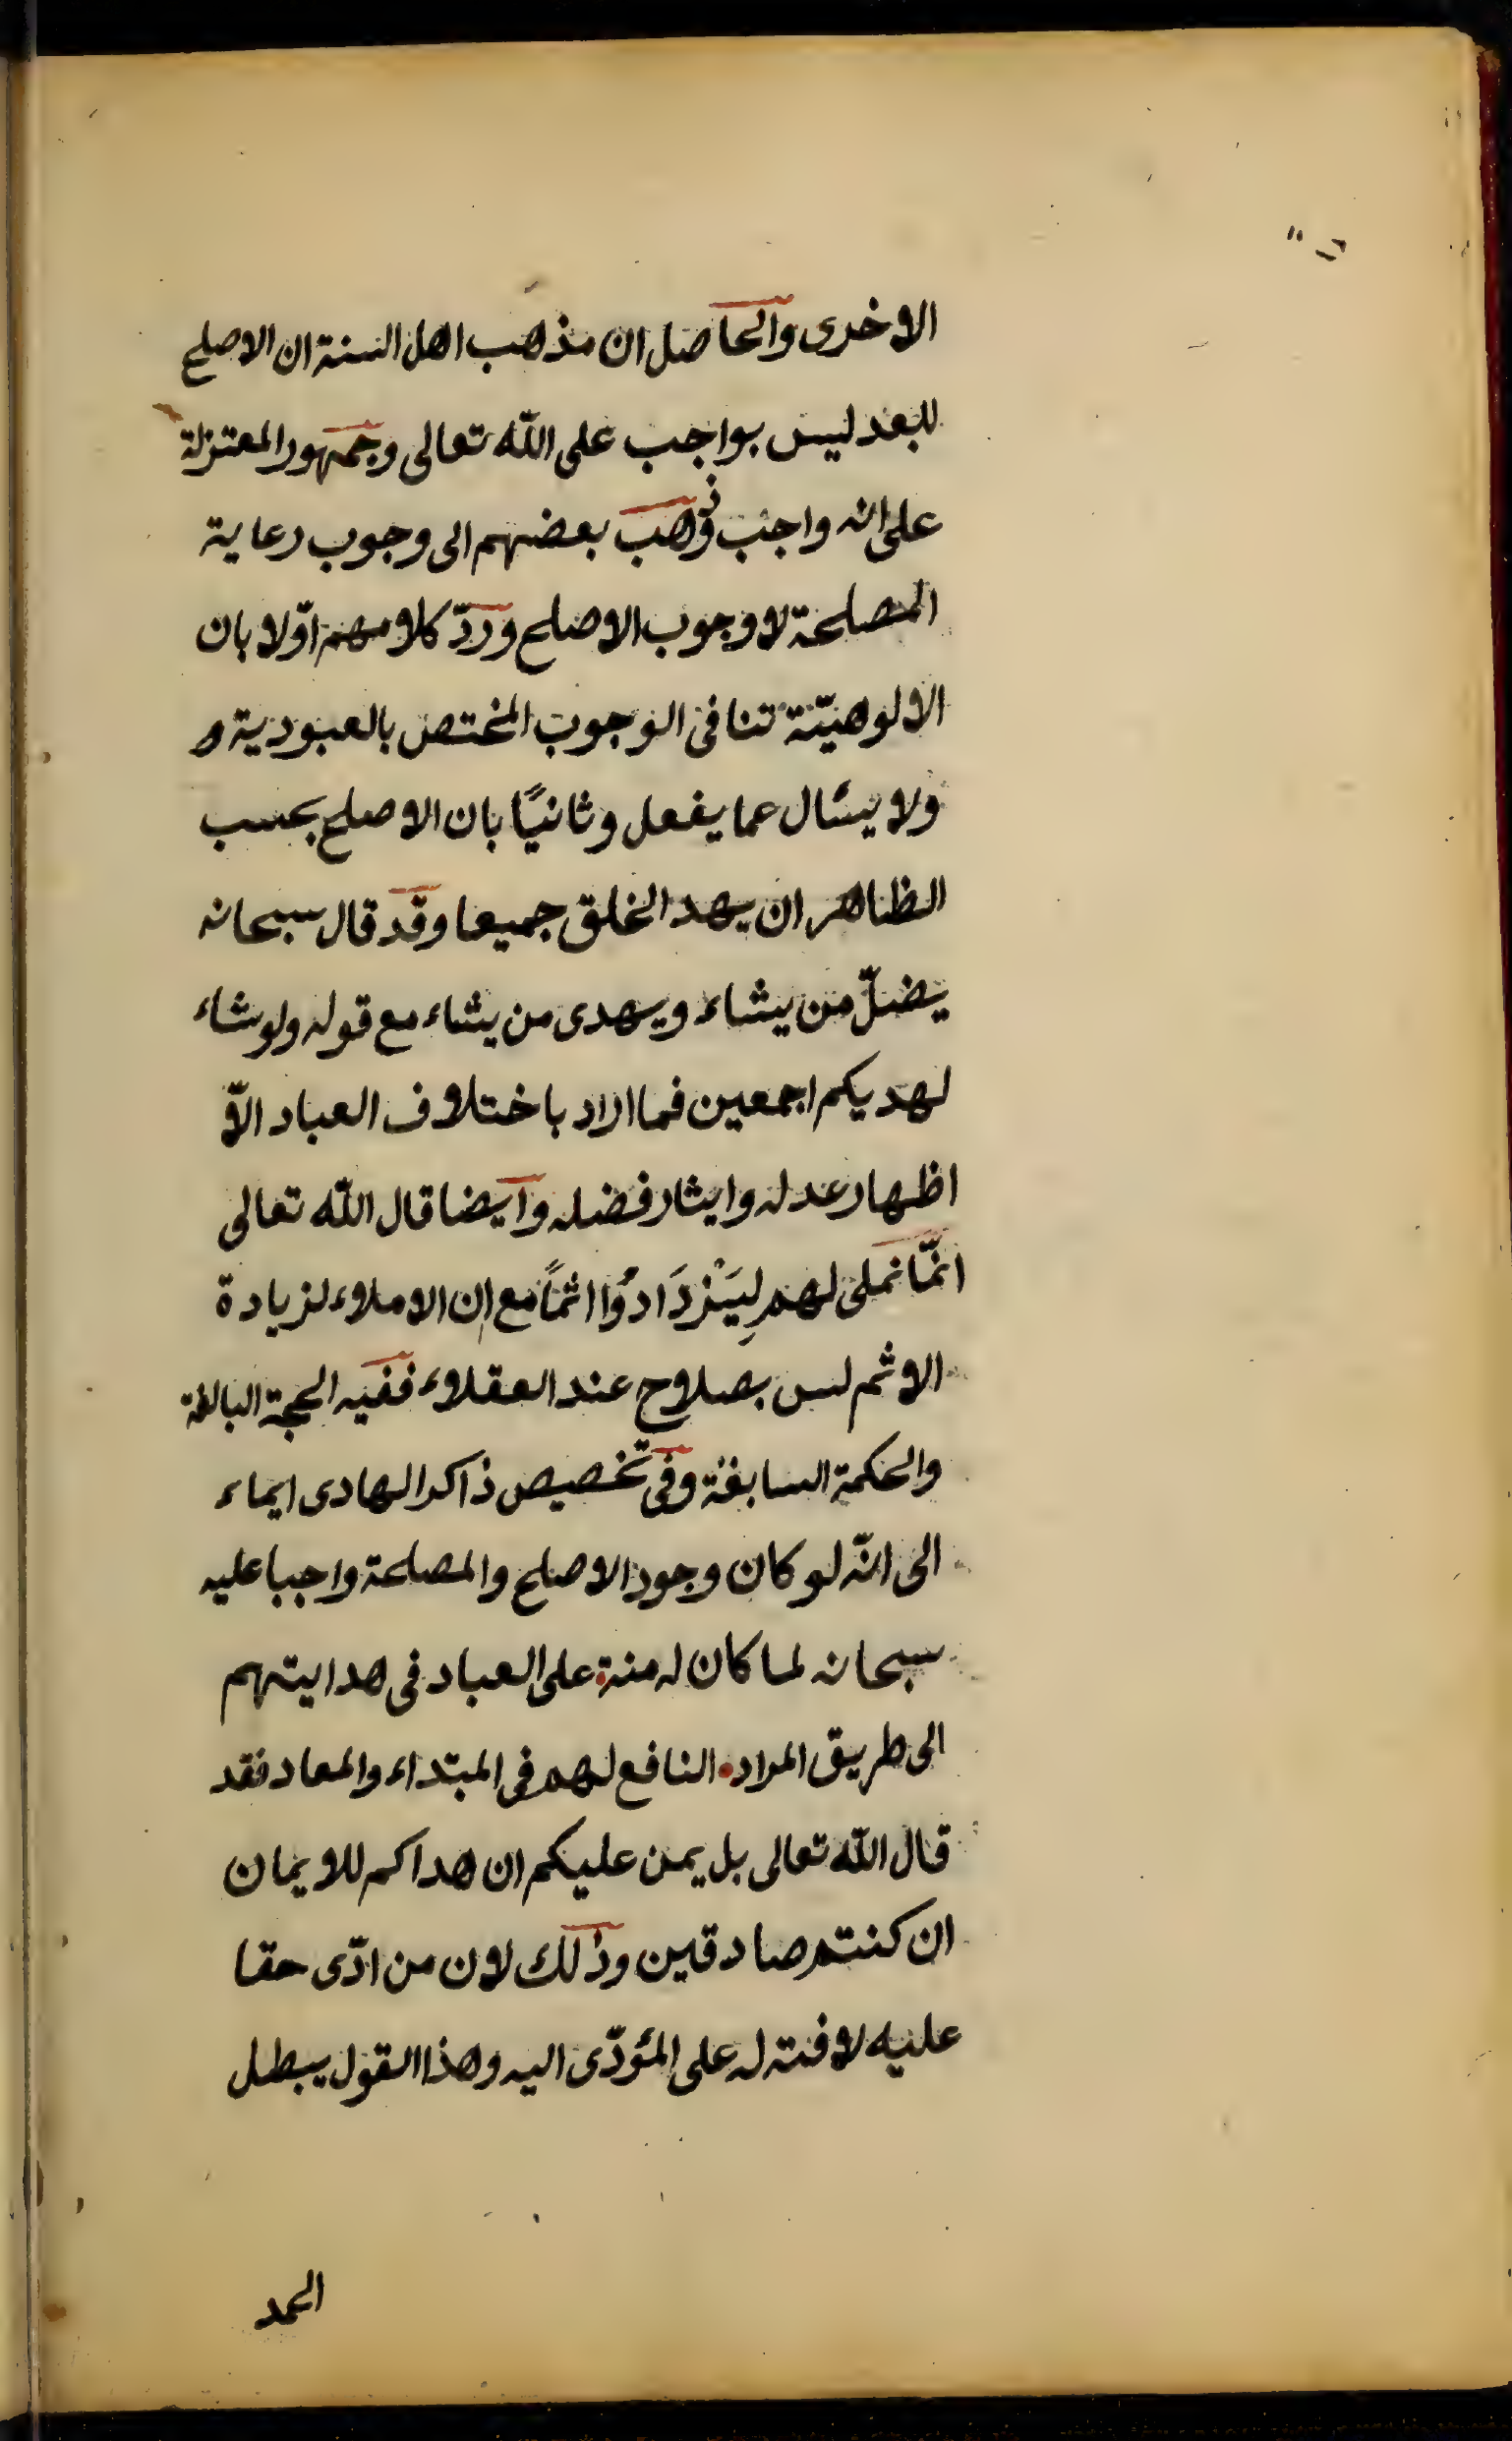 الاخرى والحاصل ان مذهب اهل السنة ان الاصلح
للبعد ليس بواجب على الله تعالى وجمهور المعتزلة
على انه واجب وذهب بعضهم الى وجوب رعاية
المصلحة لا وجوب الاصلح وردّ كلامهم اوّلا بان
الالوهيّة تنافى الوجوب المختص بالعبودية و
ولا يسئال عما يفعل وثانيًا بان الاصلح بحسب
الظاهر ان يهد الخلق جميعا وقد قال سبحانه
يضلّ من يشاء ويهدى من يشاء مع قوله ولو شاء
لهديكم اجمعين فما اراد باختلاف العباد الاّ
اظهار عدله وايثار فضله وايضا قال الله تعالى
انمّا نملى لهم لِيَزْدَادُوا اثمًا مع ان الاملاء لزيادة
الاثم لس بصلاح عند العقلاء ففيه الحجة البالغة
والحكمة السابغة وفى تخصيص ذاكر الهادى ايماء
الى انّه لو كان وجود الاصلح والمصلحة واجبا عليه
سبحانه لما كان له منة على العباد فى هدايتهم
الى طريق المراد النافع لهم فى المبتداء والمعاد فقد
قال الله تعالى بل يمن عليكم ان هداكم للايمان
ان كنتم صادقين وذلك لان من ادّى حقا
عليه لا فتة له على المؤدّى اليه وهذا القول يبطل
الحمد